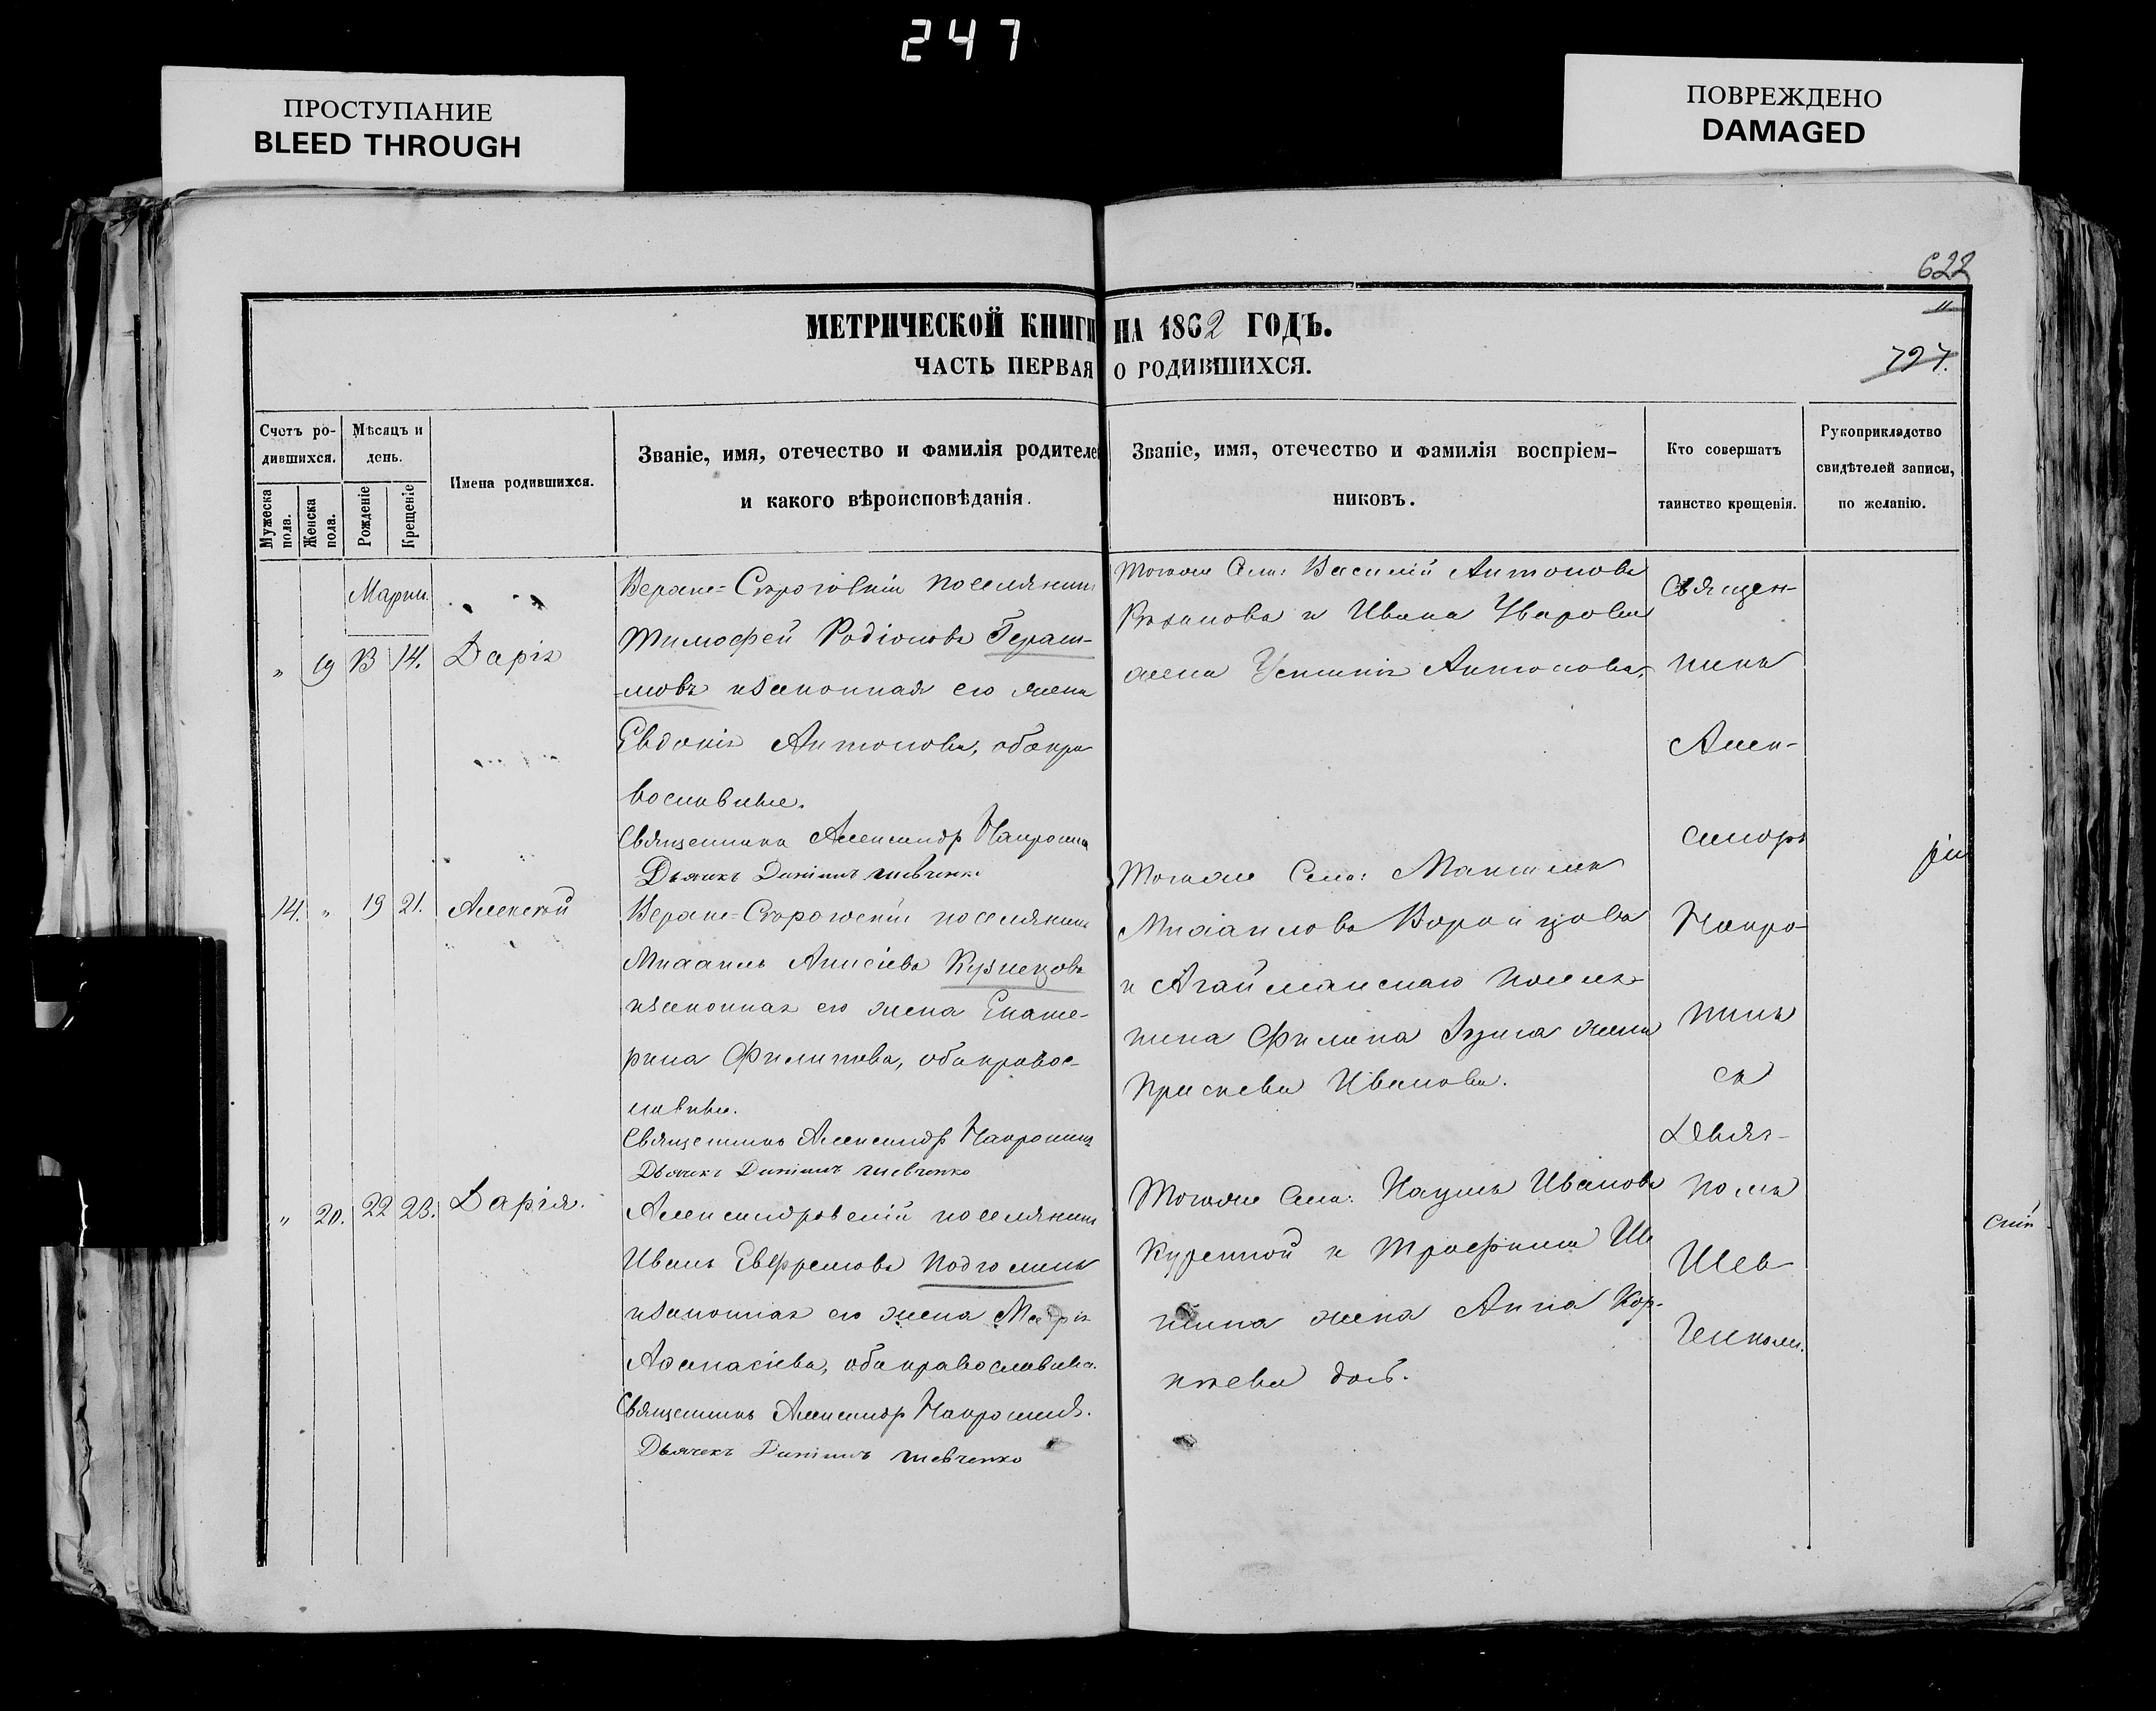 247
ПРОСТУПАНИЕ
BLEED THROUGH
ПОВРЕЖДЕНО
DAMAGED
622
МЕТРИЧЕСКОЙ КНИГИ НА 1862 ГОДЪ.
ЧАСТЬ ПЕРВАЯ О РОДИВШИХСЯ.
797.
Счетъ ро-
дившихся.
Мужеска пола.
Женска пола.
Мѣсяцъ и
день.
Рожденіе
Крещеніе
Имена родившихся.
Званіе, имя, отечество и фамилія родителе
и какого вѣроисповѣданія.
Званіе, имя, отечество и фамилія воспріем-
никовъ.
Кто совершатъ
таинство крещенія.
Рукоприкладство
свидѣтелей записи,
по желанію.
Марта
" 19 13 14. Дарія
поселянинъ
Тимофей Родіоновъ Гераси-
-мовъ и законная его жена
Евдокія Антонова, оба пра
вославные.
Священникъ Александр
Дьячекъ Шевченко
Тогоже Села: Василій Антоновъ
и Ивана Уварова
жена Устинія Антонова.
14. " 19 21. Алексѣй
поселянинъ
Михаилъ Анисіевъ Кузнецовъ
и законная его жена Екате-
рина Филипова, оба правос-
лавные.
Священникъ Александр
Дьячекъ Шевченко
Тогоже Села: Максимъ
Михаиловъ Воронцовъ
и Агайманскаго поселя-
нина Филипа жена
Ивановa.
" 20. 22 23. Дарія.
Александровскій поселянинъ
Иванъ Евфремовъ
и законная его жена Марія
Афанасіева, оба православные.
Священникъ Александр
Дьячекъ Шевченко
Тогоже Села: Наумъ Ивановъ
Куренной и Трофима
жена Анна Кор-
нѣева дочь.
Священ-
никъ
Алек-
сандръ
съ
Дьяч-
комъ
Шев-
ченком.